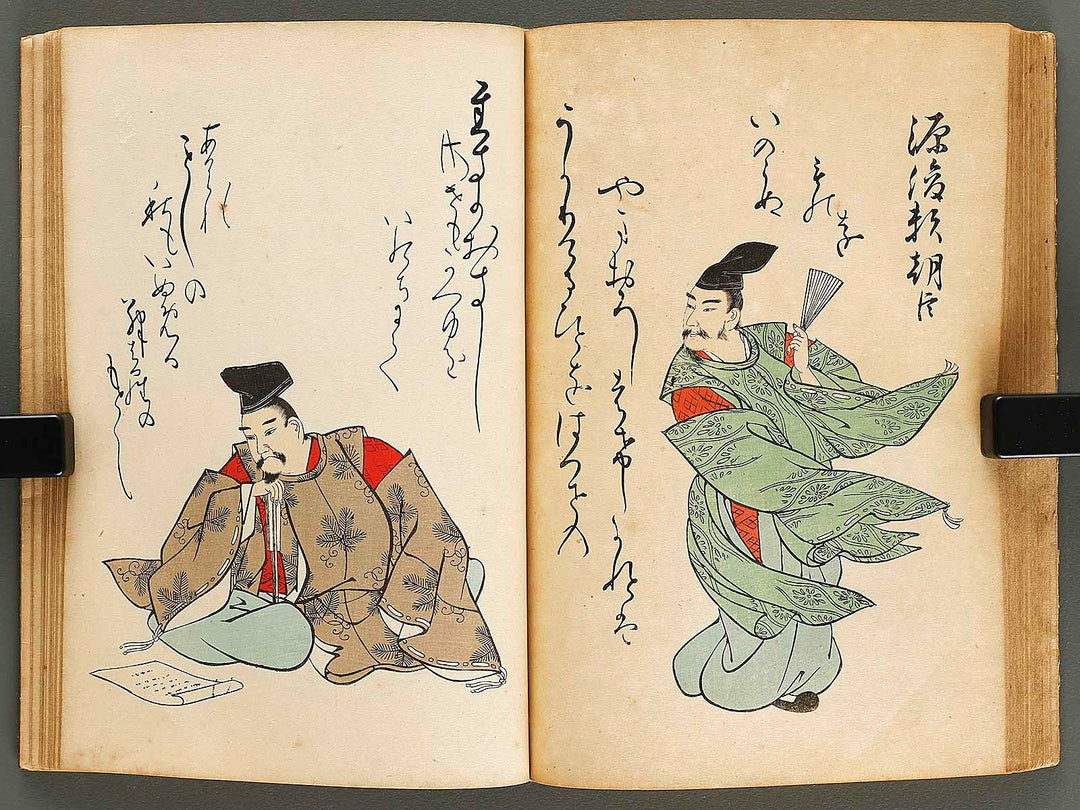 源俊頼朝臣
うかりけるひとをはつせの
やまおろしよはけしかれとは
いのらぬ
ものを
させもかつゆを
いのちにて
あはれ
ことしの
秋もいぬめり